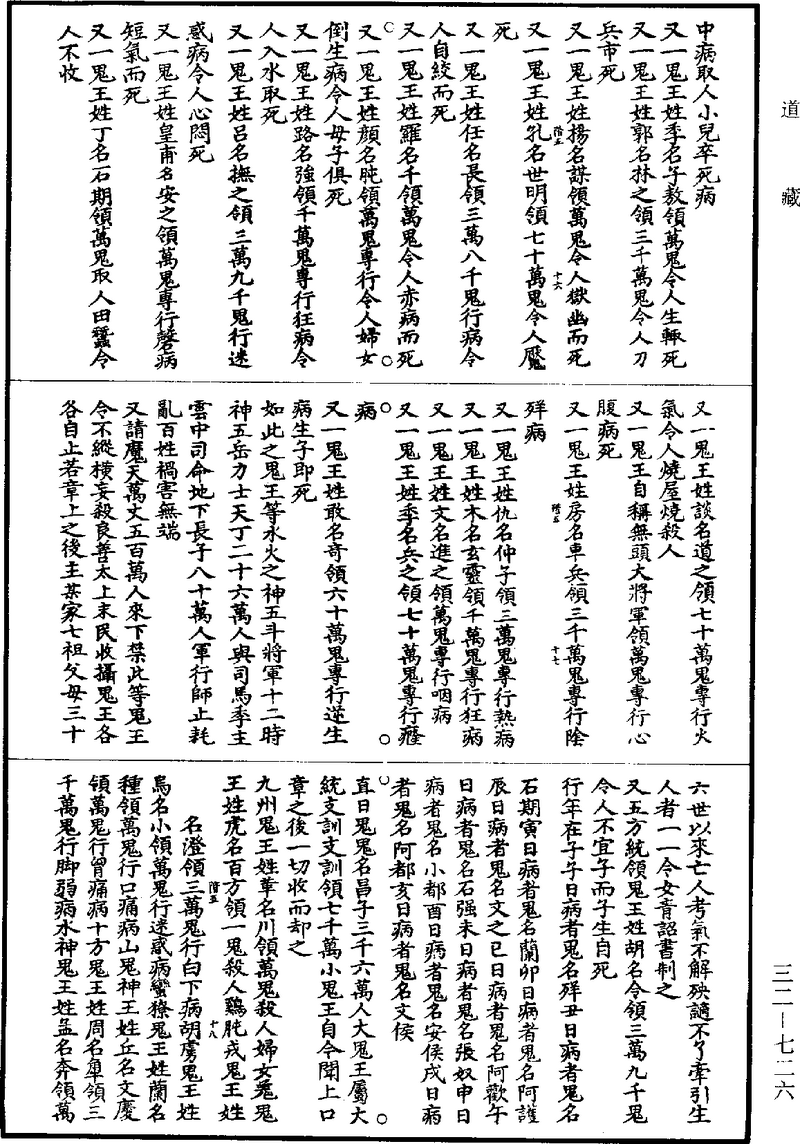 道藏
中病取人小兒卒死病
又一鬼王姓季名子敖領萬鬼令人生輙死
又一鬼王姓郭名林之領三千萬鬼令人刀
兵市死
又一鬼王姓楊名謀領萬鬼令人獄幽而死
又一鬼王姓孔名世明領七十萬鬼令人魘
死
又一鬼王姓任名長領三萬八千鬼行病令
人自絞而死
又一鬼王姓羅名千領萬鬼令人赤病而死
又一鬼王姓顔名肫領萬鬼專行令人婦女
倒生病令人母子俱死
又一鬼王姓路名強領千萬鬼專行狂病令
人入水取死
又一鬼王姓呂名撫之領三萬九千鬼行迷
惑病令人心悶死
又一鬼王姓皇甫名安之領萬鬼專行磬病
短氣而死
又一鬼王姓丁名石期領萬鬼取人田蠶令
人不收
又一鬼王姓談名道之領七十萬鬼專行火
氣令人燒屋燒殺人
又一鬼王自稱無頭大將軍領萬鬼專行心
腹病死
又一鬼王姓房名車兵領三千萬鬼專行陰
殚病
又一鬼王姓仇名仲子領三萬鬼專行熱病
又一鬼王姓木名玄靈領千萬鬼專行狂病
又一鬼王姓文名進之領萬鬼專行咽病
又一鬼王姓季名兵之領七十萬鬼專行癃
病
又一鬼王姓敢名奇領六十萬鬼專行逆生
病生子即死
如此之鬼王等水火之神五斗將軍十二時
神五岳力士天丁二十六萬人與司馬季主
雲中司命地下長子八十萬人軍行師止耗
亂百姓禍害無端
又請魔天萬丈五百萬人來下禁此等鬼王
令不縱橫妄殺良善太上末民收攝鬼王各
各自止若章上之後主某家七祖父母三十
六世以來亡人考氣不解殃讁不了牽引生
人者一一令女青詔書制之
又五方統領鬼王姓胡名令領三萬九千鬼
令人不宜子而子生自死
行年在子子日病者鬼名殚丑日病者鬼名
石期寅日病者鬼名蘭卯日病者鬼名阿護
辰日病者鬼名文之巳日病者鬼名阿歡午
日病者鬼名石强未日病者鬼名張奴申日
病者鬼名小都酉日病者鬼名安侯戌日病
者鬼名阿都亥日病者鬼名文侯
直日鬼鬼名昌子三千六萬人大鬼王屬大
統支訓支訓領七千萬小鬼王自今聞上口
章之後一切收而却之
九州鬼王姓葷名川領萬鬼殺人婦女菟鬼
王姓虎名百方領一鬼殺人鷄肫戎鬼王姓
名澄領三萬鬼行白下病胡虜鬼王姓
烏名小領萬鬼行迷惑病蠻獠鬼王姓蘭名
種領萬鬼行口痛病山鬼神王姓丘名文慶
領萬鬼行胷痛病十方鬼王姓周名厙領三
千萬鬼行脚弱病水神鬼王姓孟名奔領萬
三二—七二六